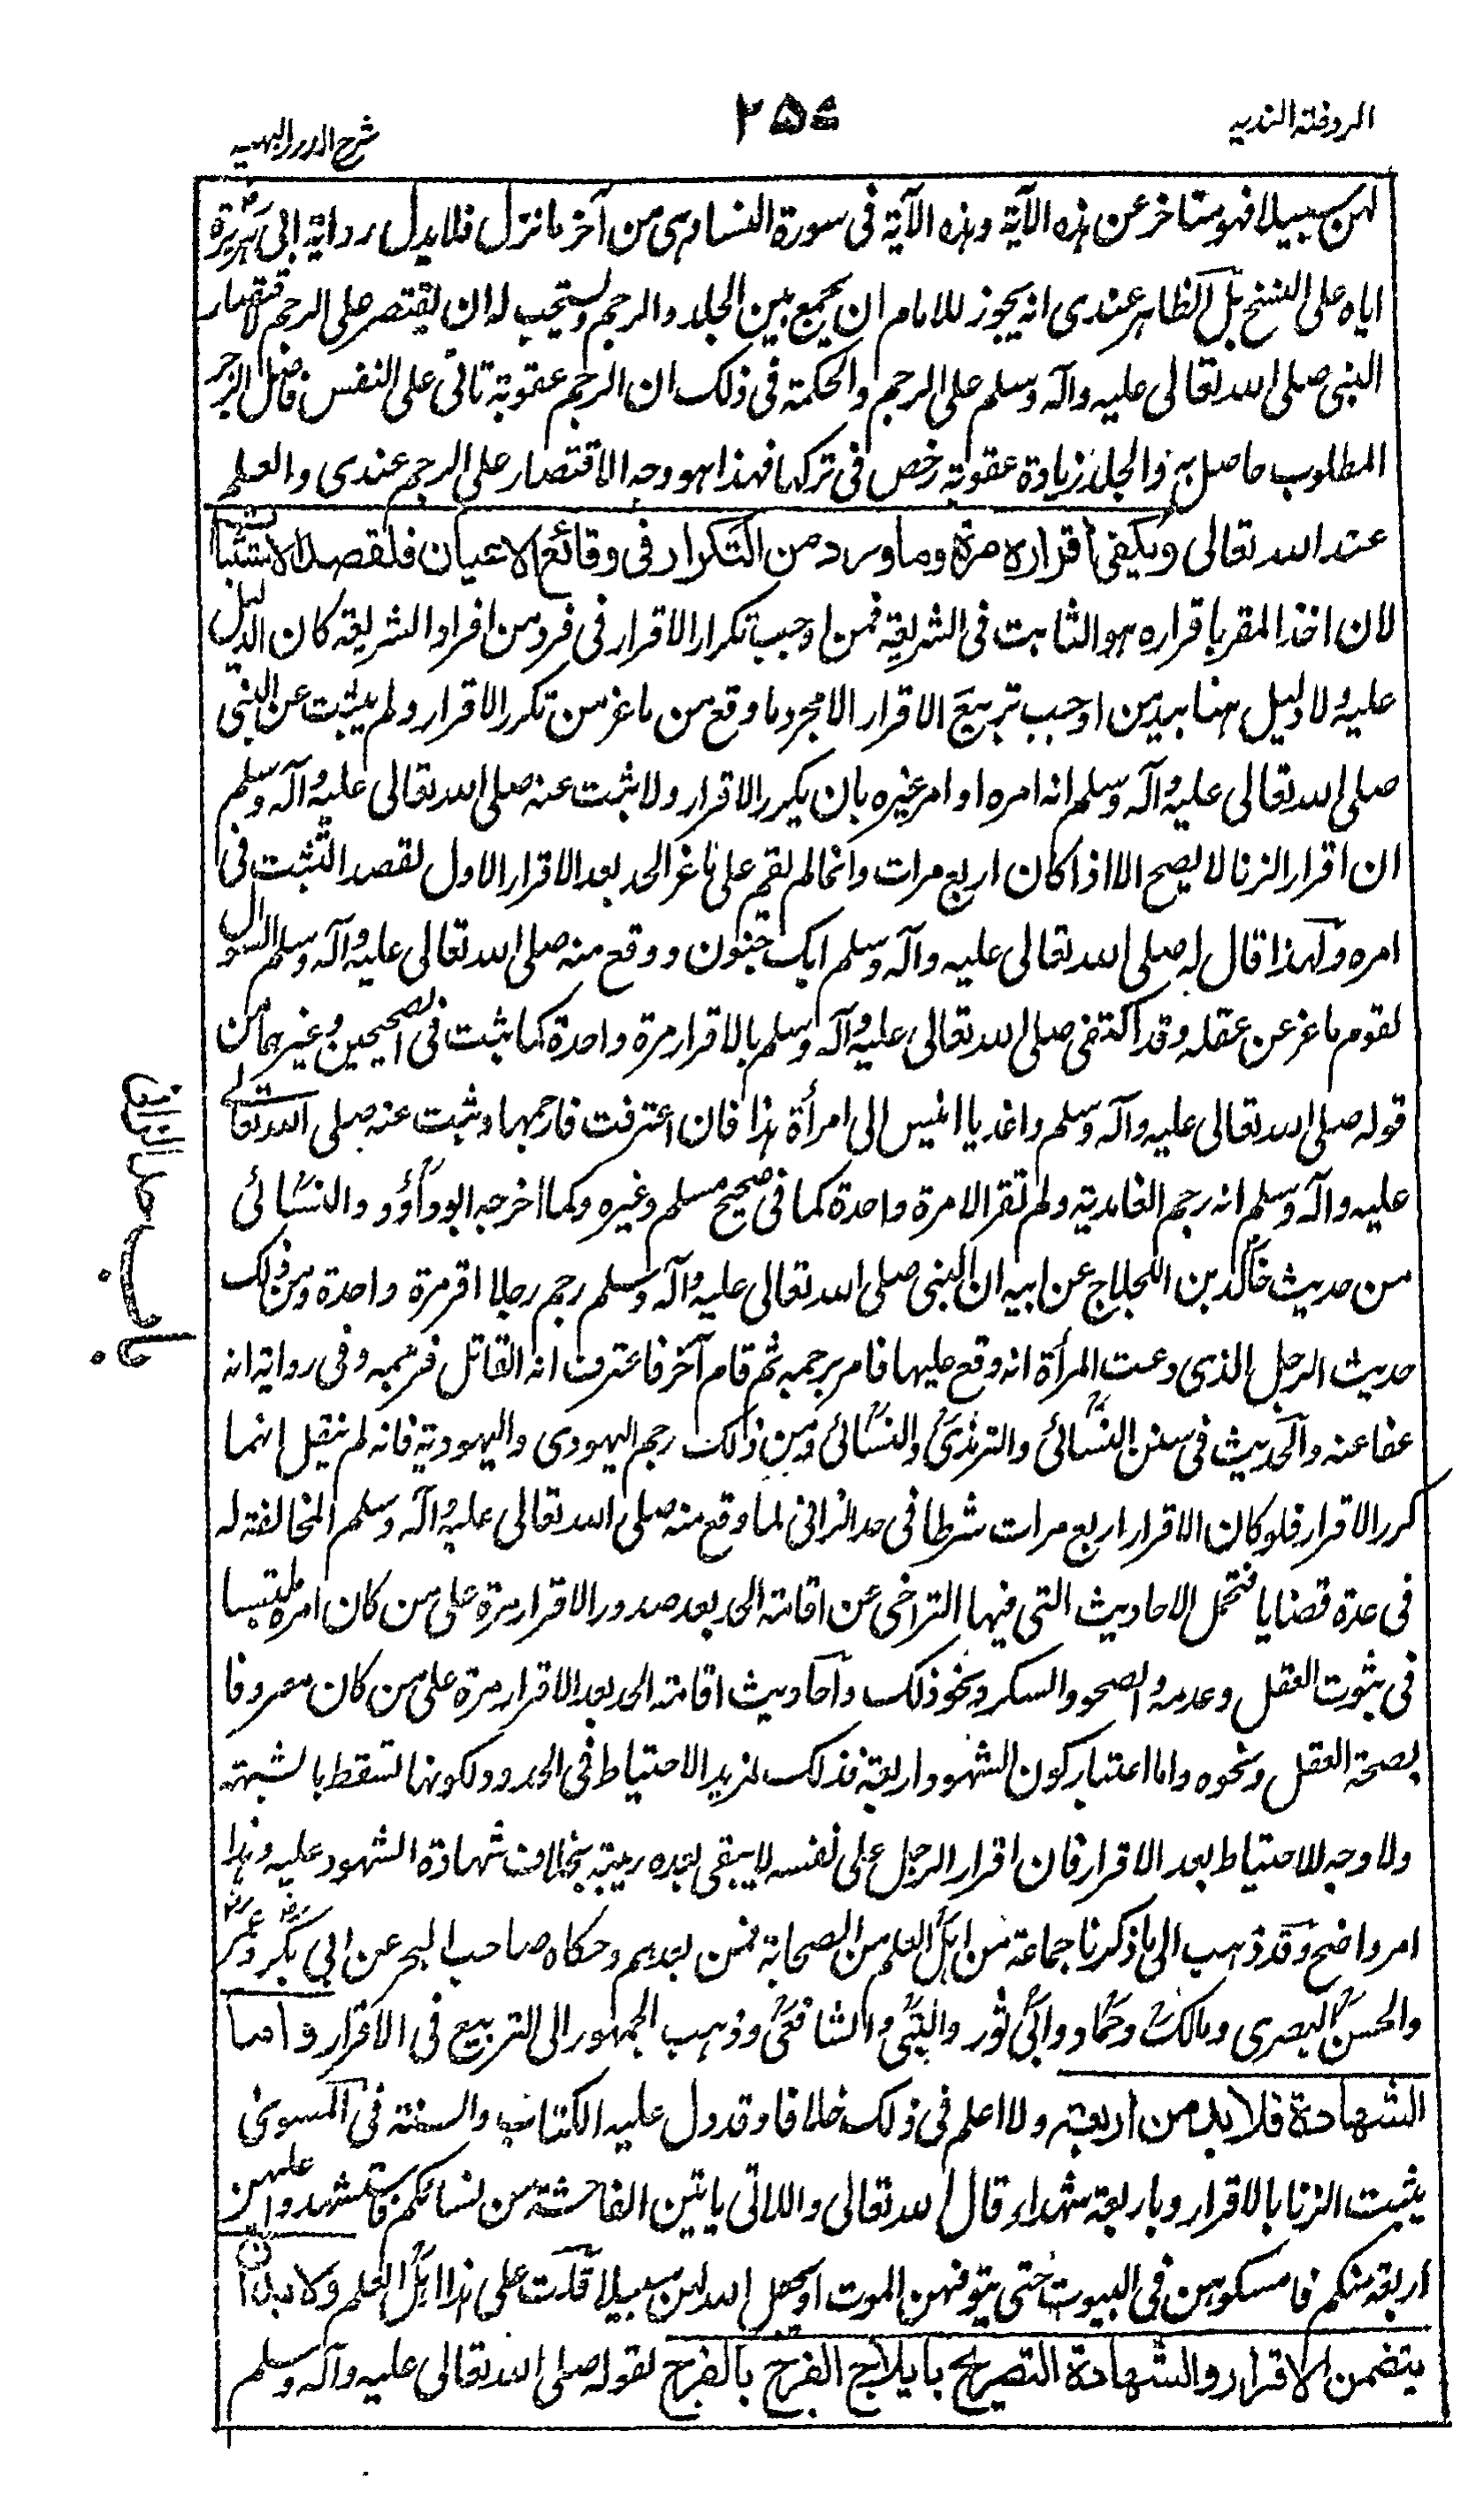 الروضة الندية
٢٥٤
شرح الدرر البهية
لهن سبيلا فهو متاخر عن هذه الآية وهذه الآية فى سورة النساء وهى من آخر ما نزل فلا يدل رواية ابى هريرة
اياه على النسخ بل الظاهر عندى انه يجوز للامام ان يجمع بين الجلد والرجم ويستحب له ان يقتصر على الرجم لاقتصار
النبى صلى الله تعالى عليه وآله وسلم على الرجم والحكمة فى ذلك ان الرجم عقوبة تاتى على النفس فاصل الزجر
المطلوب حاصل به والجلد زيادة عقوبة رخص فى تركها فهذا هو وجه الاقتصار على الرجم عندى والعلم
عند الله تعالى ويكفى اقراره مرة وما ورد من التكرار فى وقائع الاعيان فلقصد الاستثبات
لان اخذ المقر باقراره هو الثابت فى الشريعة فمن اوجب تكرار الاقرار فى فرد من افراد الشريعة كان الدليل
عليه ولا دليل هنا بيد من اوجب تربيع الاقرار الا مجرد ما وقع من ماعز من تكرر الاقرار ولم يثبت عن النبى
صلى الله تعالى عليه وآله وسلم انه امره او امر غيره بان يكرر الاقرار ولا ثبت عنه صلى الله تعالى عليه وآله وسلم
ان اقرار الزنا لا يصح الا اذا كان اربع مرات وانما لم يقم على ماعز الحد بعد الاقرار الاول لقصد التثبت فى
امره ولهذا قال له صلى الله تعالى عليه وآله وسلم ابك جنون ووقع منه صلى الله تعالى عليه وآله وسلم السوال
لقوم ماعز عن عقله وقد اكتفى صلى الله تعالى عليه وآله وسلم بالاقرار مرة واحدة كما ثبت فى الصحيحين وغيرهما من
قوله صلى الله تعالى عليه وآله وسلم واغد يا انيس الى امرأة هذا فان اعترفت فارجمها وثبت عنه صلى الله تعالى
عليه وآله وسلم انه رجم الغامدية ولم تقر الا مرة واحدة كما فى صحيح مسلم وغيره وكما اخرجه ابو داؤد والنسائى
من حديث خالد بن اللجلاج عن ابيه ان النبى صلى الله تعالى عليه وآله وسلم رجم رجلا اقر مرة واحدة ومن ذلك
حديث الرجل الذى دعت المرأة انه وقع عليها فامر برجمه ثم قام آخر فاعترف انه القاتل فرجمه وفى رواية انه
عفا عنه والحديث فى سنن النسائى والترمذى والنسائى ومن ذلك رجم اليهودى واليهودية فانه لم ينقل انهما
كررا الاقرار فلو كان الاقرار اربع مرات شرطا فى حد الزانى لما وقع منه صلى الله تعالى عليه وآله وسلم المخالفة له
فى عدة قضايا فتحمل الاحاديث التى فيها التراخى عن اقامة الحد بعد صدور الاقرار مرة على من كان امره ملتبسا
فى ثبوت العقل وعدمه والصحو والسكر ونحو ذلك واحاديث اقامة الحد بعد الاقرار مرة على من كان معروفا
بصحة العقل ونحوه واما اعتبار كون الشهود اربعة فذلك لمزيد الاحتياط فى الحدود ولكونها تسقط بالشبهة
ولا وجه للاحتياط بعد الاقرار فان اقرار الرجل على نفسه لا يبقى بعده ريبة بخلاف شهادة الشهود عليه وهذا
امر واضح وقد ذهب الى ما ذكرنا جماعة من اهل العلم من الصحابة فمن بعدهم وحكاه صاحب البحر عن ابى بكر وعمر
والحسن البصرى ومالك وحماد وابى ثور والبتى والشافعى وذهب الجمهور الى التربيع فى الاقرار واما
الشهادة فلا بد من اربعة ولا اعلم فى ذلك خلافا وقد دل عليه الكتاب والسنة فى المسوى
يثبت الزنا بالاقرار وباربعة شهداء قال الله تعالى واللاتى ياتين الفاحشة من نسائكم فاستشهدوا عليهن
اربعة منكم فامسكوهن فى البيوت حتى يتوفهن الموت او يجعل الله لهن سبيلا قلت على هذا اهل العلم ولا بد ان
يتضمن الاقرار والشهادة التصريح بايلاج الفرج بالفرج لقوله صلى الله تعالى عليه وآله وسلم
باب حد الزانى